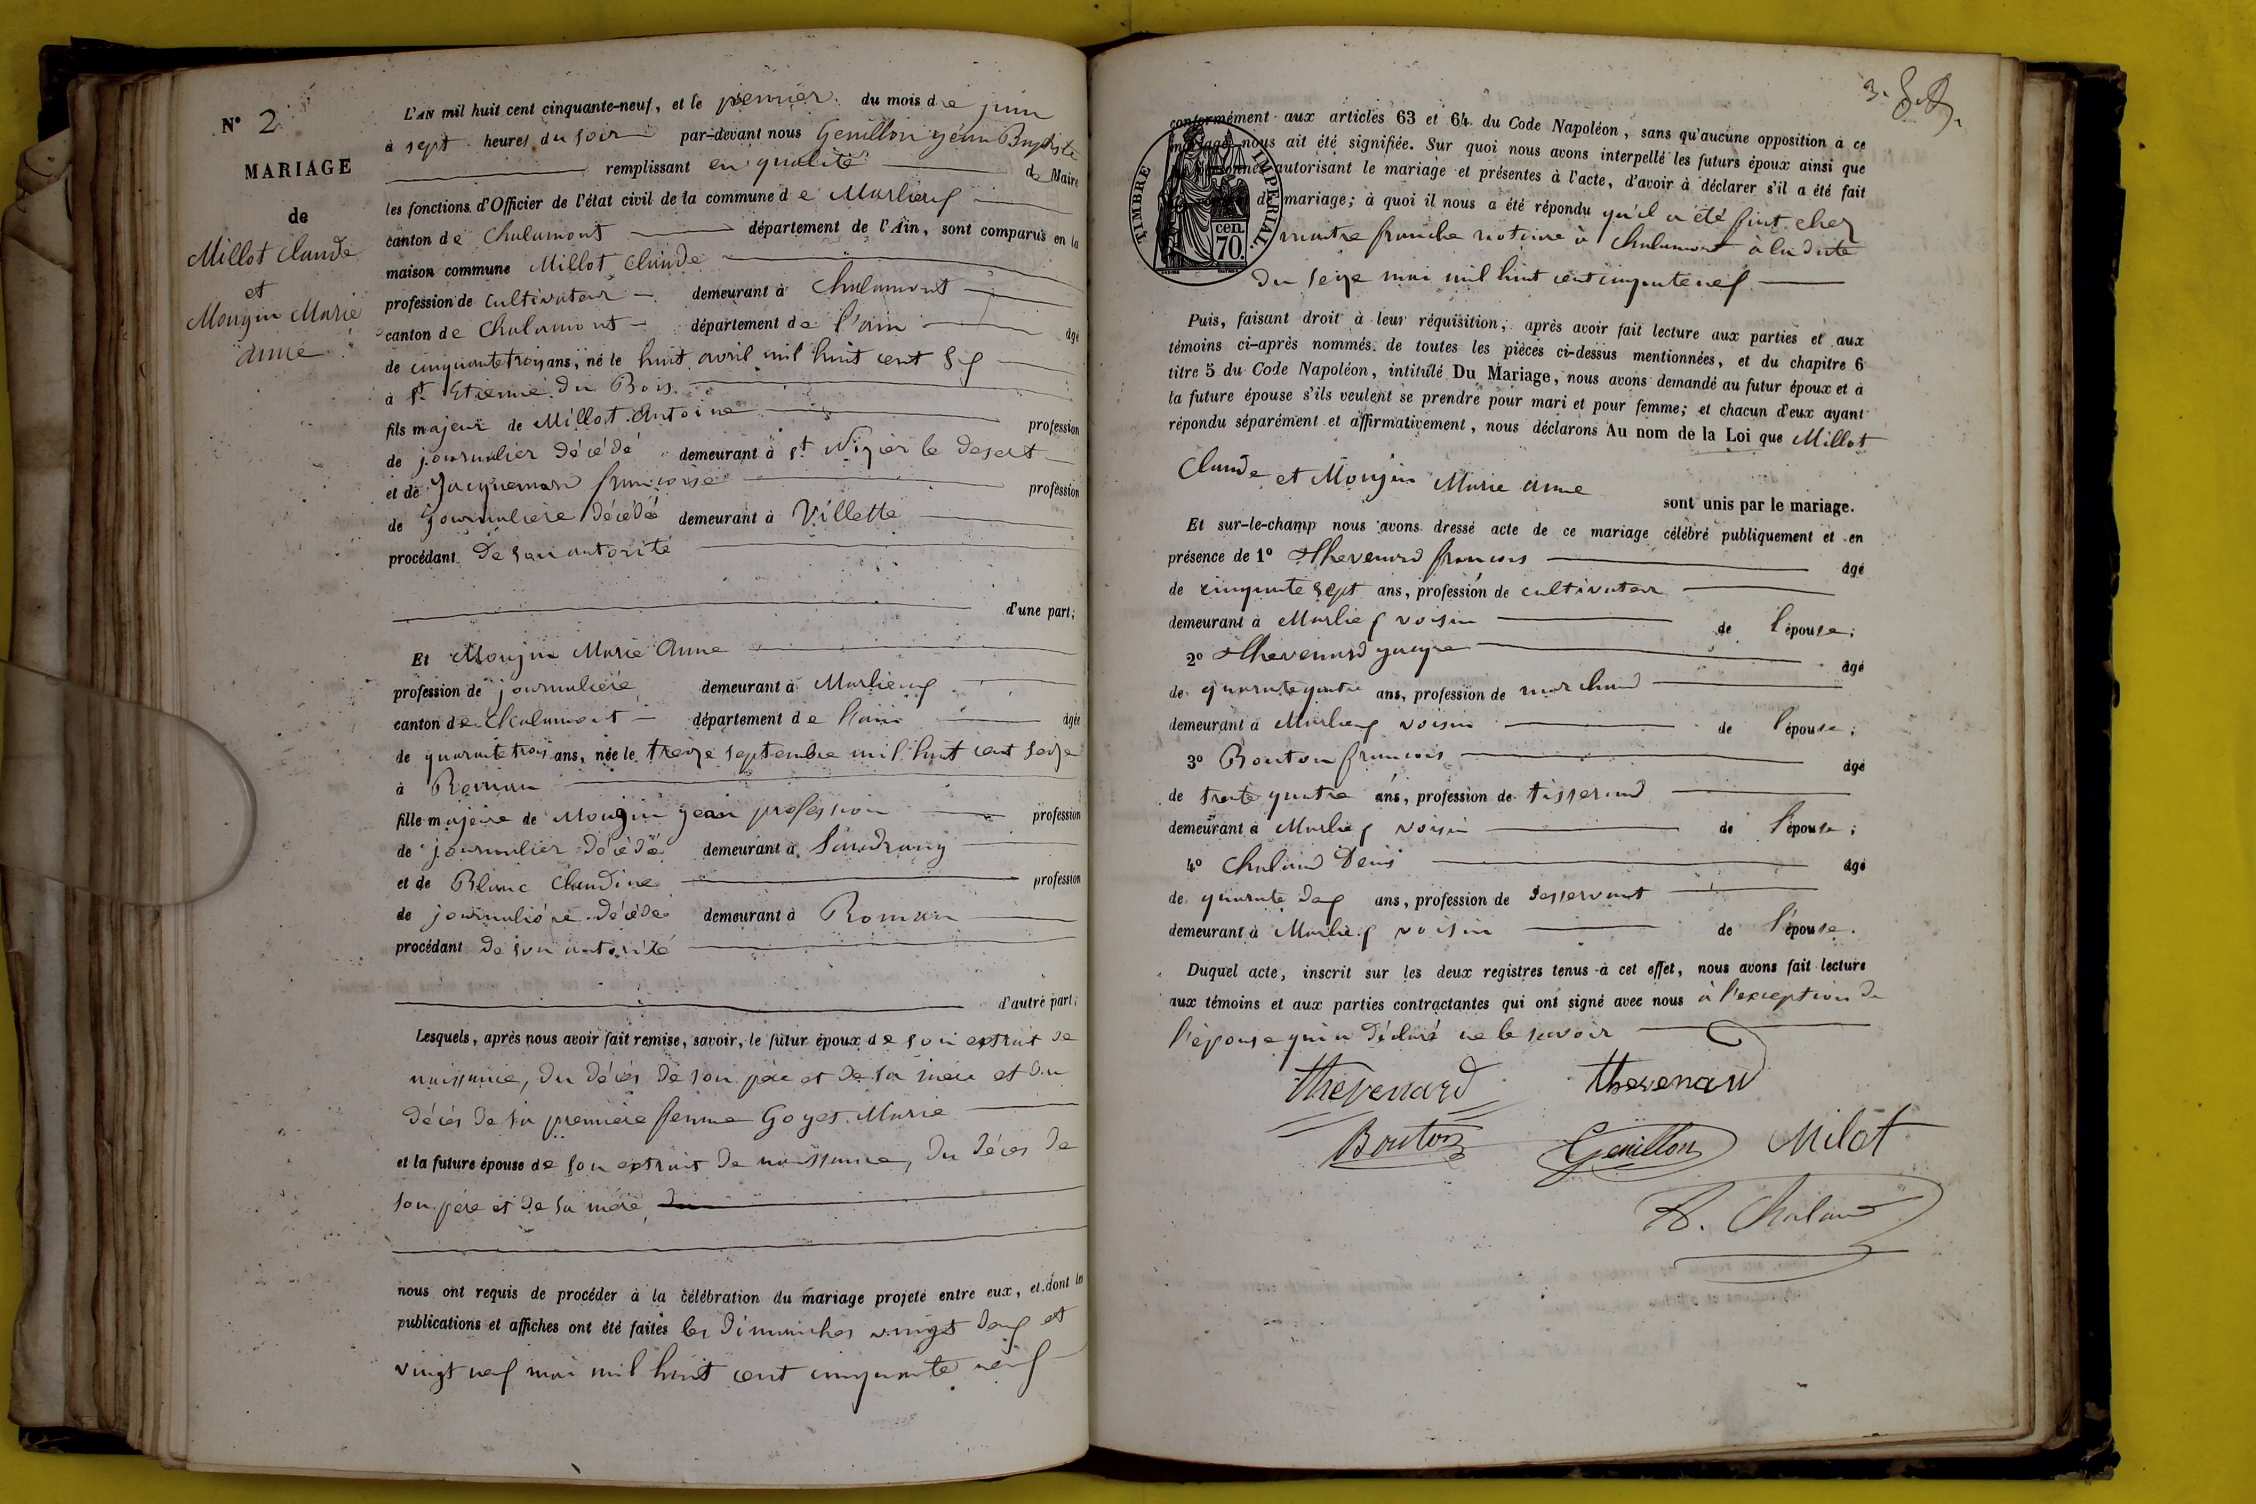 N° 2
MARIAGE
de
Millot Claude
et
Mongin Marie
anne
L'AN mil huit cent cinquante-neuf, et le premier du mois de juin
à sept heures du soir par-devant nous Genillon jean Baptiste
remplissant en qualité de Maire
les fonctions d'Officier de l'état civil de la commune de Marlieux
canton de Chalamont département de l'Ain, sont comparus en la
maison commune Millot Claude
profession de cultivateur demeurant à Chalamont
canton de Chalamont département de l'ain âgé
de cinquante trois ans, né le huit avril mil huit cent six
à St Etienne du Bois
fils majeur de Millot Antoine profession
de journalier décédé demeurant à St Nizier le desert
et de Jacquemard francoise profession
de journaliere décédée demeurant à Villette
procédant de son autorité
d'une part;
Et Monjin Marie Anne
profession de journaliere demeurant à Marlieux
canton de Chalamont département de l'ain âgée
de quarante trois ans, née le treize septembre mil huit cent seize
à Romans
fille majeure de Mongin jean profession profession
de journalier décédé demeurant à Sandrans
et de Blanc Claudine profession
de journalière décédée demeurant à Roman
procédant de son autorité
d'autre part;
Lesquels, après nous avoir fait remise, savoir, le futur époux de son extrait de
naissance, du décés de son père et de sa mère et du
décés de sa première femme Goyet Marie
et la future épouse de son extrait de naissance, du décés de
son père et de sa mère
nous ont requis de procéder à la célébration du mariage projeté entre eux, et dont les
publications et affiches ont été faites les dimanches vingt deux et
vingt neuf mai mil huit cent cinquante neuf
conformément aux articles 63 et 64 du Code Napoléon, sans qu'aucune opposition à ce
mariage nous ait été signifiée. Sur quoi nous avons interpellé les futurs époux ainsi que
personnes autorisant le mariage et présentes à l'acte, d'avoir à déclarer s'il a été fait
de mariage; à quoi il nous a été répondu qu'il a été fait chez
maitre franche notaire à Chalamont à la date
du seize mai mil huit cent cinquante neuf
TIMBRE IMPERIAL
70 cen.
Puis, faisant droit à leur réquisition, après avoir fait lecture aux parties et aux
témoins ci-après nommés de toutes les pièces ci-dessus mentionnées, et du chapitre 6
titre 5 du Code Napoléon, intitulé Du Mariage, nous avons demandé au futur époux et à
la future épouse s'ils veulent se prendre pour mari et pour femme; et chacun d'eux ayant
répondu séparément et affirmativement, nous déclarons Au nom de la Loi que Millot
Claude et Monjin Marie anne
sont unis par le mariage.
Et sur-le-champ nous avons dressé acte de ce mariage célébré publiquement et en
présence de 1° Thevenard francois âgé
de cinquante sept ans, profession de cultivateur
demeurant à Marlieux voisin de l'épouse;
2° Thevenard jacque âgé
de quarante quatre ans, profession de marchand
demeurant à Marlieux voisin de l'épouse;
3° Bouton francois âgé
de trente quatre ans, profession de tisserand
demeurant à Marlieux voisin de l'épouse;
4° Chaland Denis âgé
de quarante deux ans, profession de desservant
demeurant à Marlieux voisin de l'épouse.
Duquel acte, inscrit sur les deux registres tenus à cet effet, nous avons fait lecture
aux témoins et aux parties contractantes qui ont signé avec nous à l'exception de
l'épouse qui a déclaré ne le savoir
thevenard thevenard
Bouton Genillon Milot
Chaland